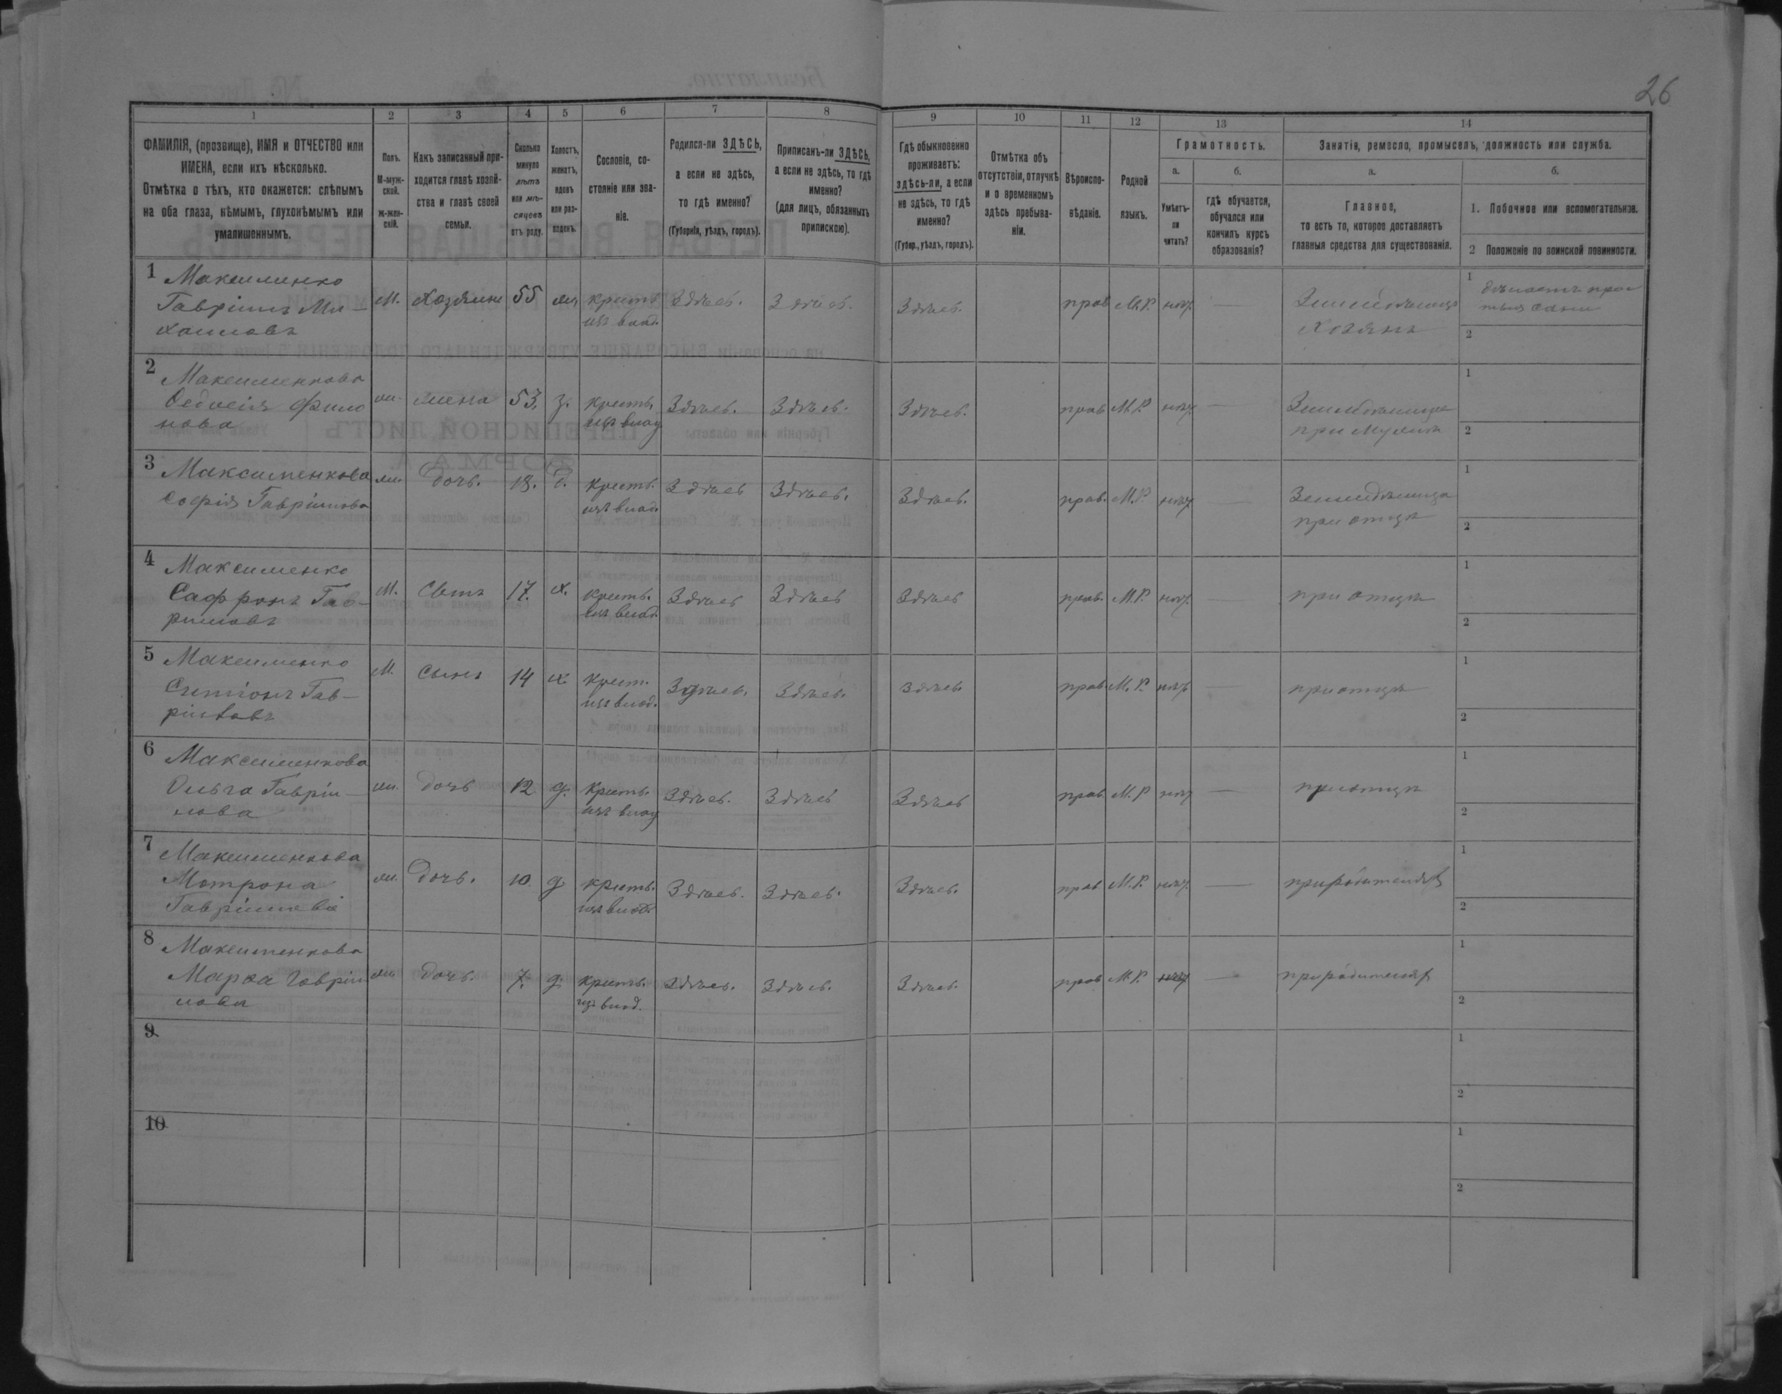 26
1 2 3 4 5 6 7 8 9 10 11 12 13 14
ФАМИЛІЯ, (прозвище), ИМЯ и ОТЧЕСТВО или
ИМЕНА, если ихъ нѣсколько.
Отмѣтка о тѣхъ, кто окажется: слѣпымъ
на оба глаза, нѣмымъ, глухонѣмымъ или
умалишеннымъ.
Полъ.
М-муж-
ской.
ж-жен-
скій.
Какъ записанный при-
ходится главѣ хозяй-
ства и главѣ своей
семьи.
Сколько
минуло
лѣтъ
или мѣ-
сяцевъ
отъ роду.
Холостъ,
женатъ,
вдовъ
или раз-
веденъ.
Сословіе, со-
стояніе или зва-
ніе.
Родился-ли ЗДѢСЬ,
а если не здѣсь,
то гдѣ именно?
(Губернія, уѣздъ, городъ).
Приписанъ-ли ЗДѢСЬ,
а если не здѣсь, то гдѣ
именно?
(для лицъ, обязанныхъ
припискою).
Гдѣ обыкновенно
проживаетъ:
здѣсь-ли, а если
не здѣсь, то гдѣ
именно?
(Губер., уѣздъ, городъ).
Отмѣтка объ
отсутствіи, отлучкѣ
и о временномъ
здѣсь пребыва-
ніи.
Вѣроиспо-
вѣданіе.
Родной
языкъ.
Грамотность.
а.
Умѣетъ-
ли
читать?
б.
гдѣ обучается,
обучался или
кончилъ курсъ
образованія?
Занятія, ремесло, промыселъ, должность или служба.
а.
Главное,
то есть то, которое доставляетъ
главныя средства для существованія.
б.
1. Побочное или вспомогательное.
2 Положеніе по воинской повинности.
1 Максименко
Гавріилъ Ми-
хаиловъ
М. Хозяинъ 55 крест. изъ влад. Здѣсь. Здѣсь. Здѣсь. прав М.Р. нѣтъ —
Хозяинъ
1
сани
2
2 Максименкова
Федосія Фили
нова
ж. жена 53. з. крест. изъ влад Здѣсь. Здѣсь. Здѣсь. прав М.Р. нѣтъ —
при мужѣ
1
2
3 Максименкова
Софія Гавріилова
ж. дочь. 18. д. крест. изъ влад. Здѣсь Здѣсь. Здѣсь. прав. М.Р. нѣтъ —
Земледѣлица
при отцѣ
1
2
4 Максименко
Сафронъ Гав-
риловъ
М. Сынъ 17. х. крест. изъ влад. Здѣсь Здѣсь Здѣсь прав. М.Р. нѣтъ
при отцѣ
1
2
5 Максименко
Симіонъ Гав-
ріиловъ
М. Сынъ 14 х крест. изъ влад. Здѣсь. Здѣсь. Здѣсь прав. М.Р. нѣтъ —
при отцѣ
1
2
6 Максименкова
Ольга Гавріи-
лова
ж. дочь 12 д. крест. изъ влад Здѣсь. Здѣсь Здѣсь прав. М.Р нѣтъ —
при отцѣ
1
2
7 Максименкова
Мотрона
ж. дочь. 10. д крест. изъ влад. Здѣсь. Здѣсь. Здѣсь. прав М.Р. нѣтъ —
при родителяхъ
1
2
8 Максименкова
Марѳа Гавріи
лова
ж. дочь. 7. д. крест. изъ влад. Здѣсь. Здѣсь. Здѣсь. прав М.Р. нѣтъ —
при родителяхъ
1
2
9
1
2
10
1
2